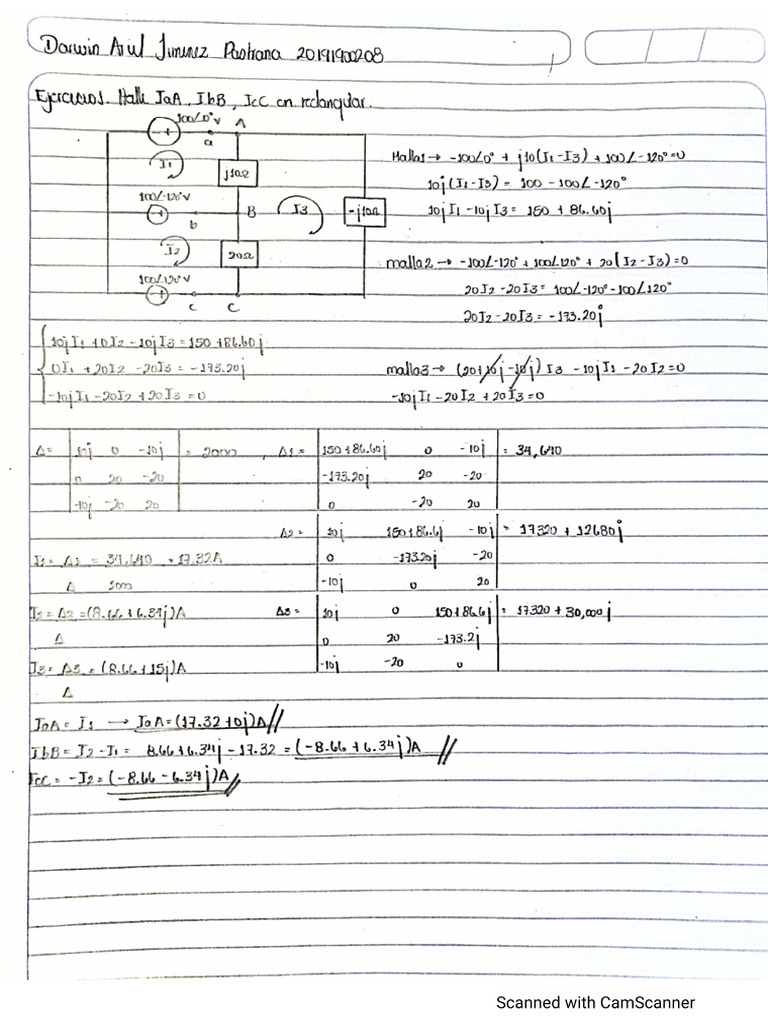 Darwin Ariel Jimenez Pastrana 20191900208
Ejercicios. Halle IaA, IbB, IcC en rectangular.
100∠0° V A
a
I1
j10Ω
100∠-120° V
b
B
I3
-j10Ω
I2
20Ω
100∠120° V
c C
Malla1 → -100∠0° + j10(I1-I3) + 100∠-120° = 0
10j(I1-I3) = 100 - 100∠-120°
10jI1 - 10jI3 = 150 + 86.60j
malla2 → -100∠-120° + 100∠120° + 20(I2-I3) = 0
20I2 - 20I3 = 100∠-120° - 100∠120°
20I2 - 20I3 = -173.20j
10jI1 + 0I2 - 10jI3 = 150 + 86.60j
0I1 + 20I2 - 20I3 = -173.20j
-10jI1 - 20I2 + 20I3 = 0
malla3 → (20+10j-10j) I3 - 10jI1 - 20I2 = 0
-10jI1 - 20I2 + 20I3 = 0
Δ = 10j 0 -10j = 2000 , Δ1 = 150+86.60j 0 -10j = 34,640
0 20 -20 -173.20j 20 -20
-10j -20 20 0 -20 20
Δ2 = 10j 150+86.6j -10j = 17320 + 12680j
I1 = Δ1 = 34,640 = 17.32A 0 -173.20j -20
Δ 2000 -10j 0 20
I2 = Δ2 = (8.66 + 6.34j)A Δ3 = 10j 0 150+86.6j = 17320 + 30,000j
Δ 0 20 -173.2j
I3 = Δ3 = (8.66 + 15j)A -10j -20 0
Δ
IaA = I1 → IaA = (17.32 + 0j)A //
IbB = I2 - I1 = 8.66 + 6.34j - 17.32 = (-8.66 + 6.34j)A //
IcC = -I2 = (-8.66 - 6.34j)A //
Scanned with CamScanner